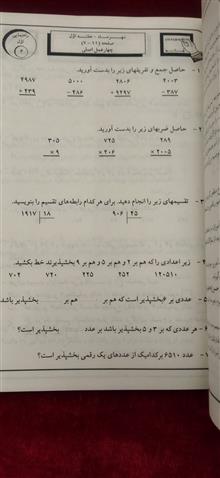 مهرماه - هفته اول
صفحه (۱۱-۷)
چهار عمل اصلی
اول
۱ - حاصل جمع و تفریقهای زیر را بدست آورید.
۲۰۰۳ ۲۸۰۶ ۵۰۰۰ ۴۹۸۷
- ۳۸۷ + ۹۲۹۷ - ۴۸۶ + ۲۳۹
۲ - حاصل ضربهای زیر را بدست آورید.
۲۸۹ ۷۲۵ ۳۰۵
× ۲۰۰۵ × ۲۰۶ × ۹
۳ - تقسیمهای زیر را انجام دهید. برای هر کدام رابطه‌های تقسیم را بنویسید.
۹۰۶ ۲۵ ۱۹۱۷ ۱۸
۴ - زیر اعدادی را که هم بر ۲ و هم بر ۵ و هم بر ۹ بخشپذیرند خط بکشید.
۱۲۰۵۱۰ ۲۵۲ ۲۲۵ ۷۲۰ ۷۰۲
۵ - عددی بر ۶ بخشپذیر است که هم بر هم بر بخشپذیر باشد
۶ - هر عددی که بر ۳ و ۵ بخشپذیر باشد بر عدد بخشپذیر است؟
۷ - عدد ۶۵۱۰ بر کدامیک از عددهای یک رقمی بخشپذیر است؟